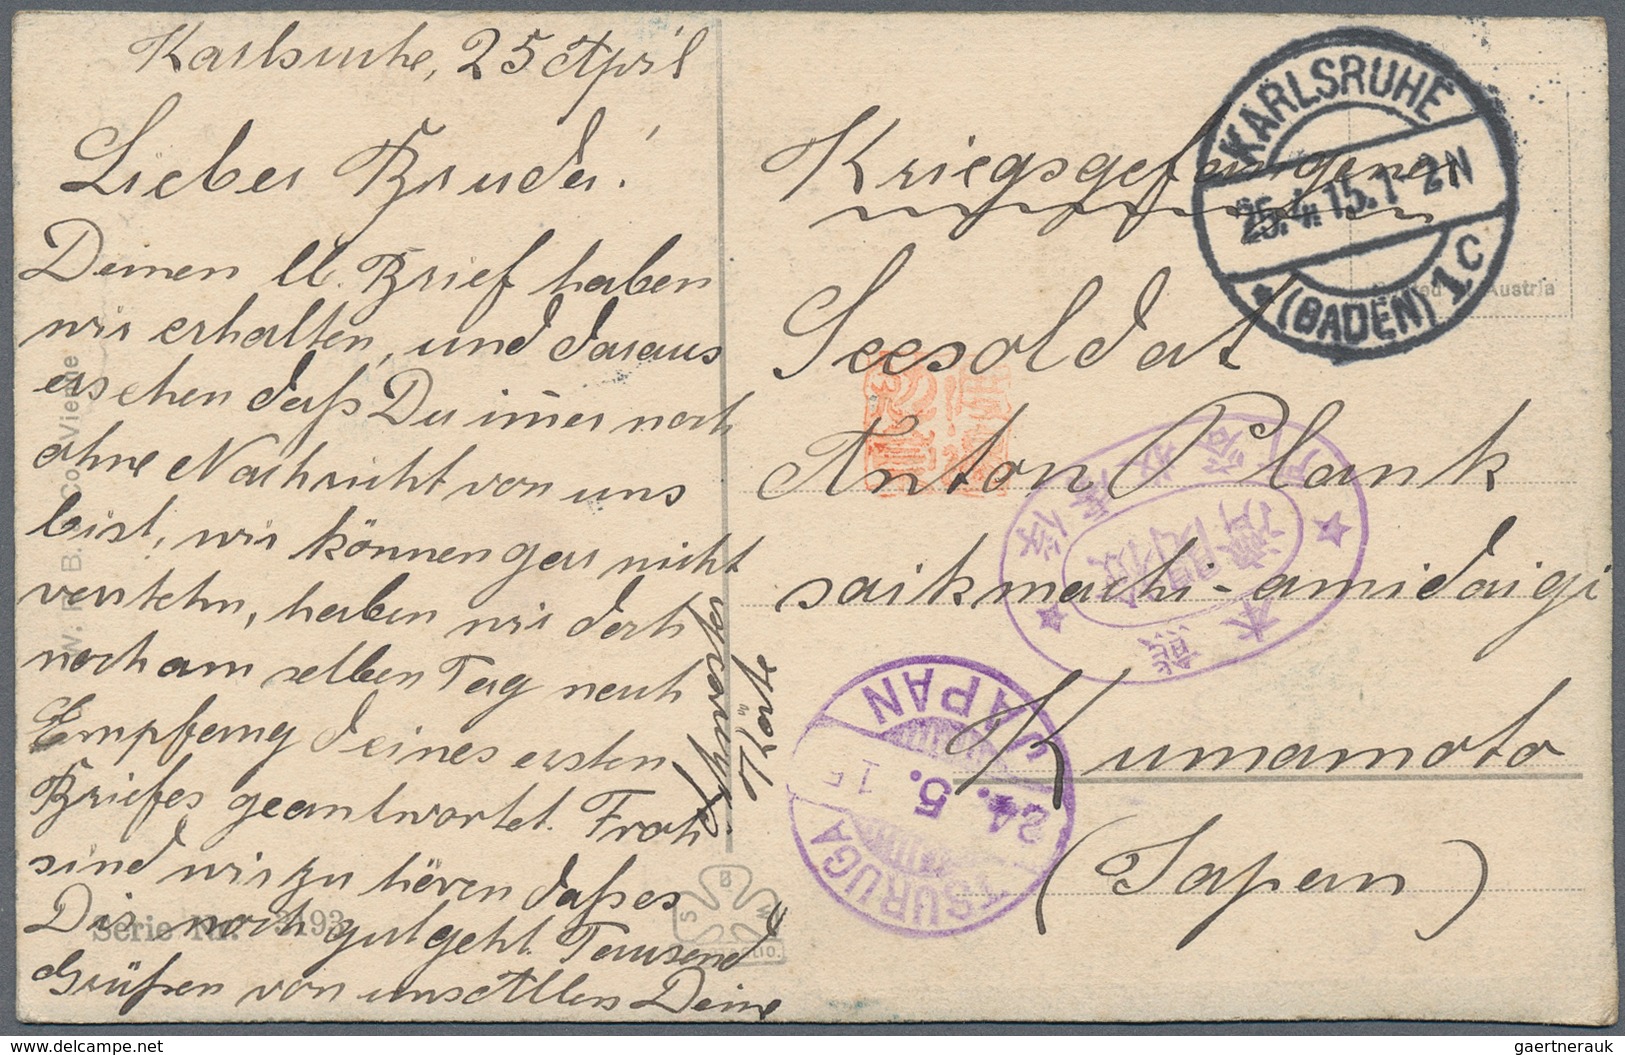 Karlsruhe, 25 April
Lieber Bruder!
Deinen lb. Brief haben
wir erhalten, und daraus
ersehen daß Du im̅er noch
ohne Nachricht von uns
bist, wir können gar nicht
verstehn, haben wir doch
noch am selben Tag nach
Empfang deines ersten
Briefes geantwortet. Froh
sind wir zu hören daß es
Dir noch gut geht. Tausend
Grüßen von uns Allen Deine
Käte
Kriegsgefangenen
Seesoldat
Anton Plank
saikmachi-amidaigi
Kumamoto
(Japan)
KARLSRUHE
25.4.15.1-2N
*(BADEN) 1C
Austria
熊本
俘虜収容
検閲
JAPAN
24.5.15
TSURUGA
Serie Nr. 3193
B. Co. Vienne
gaertnerauk